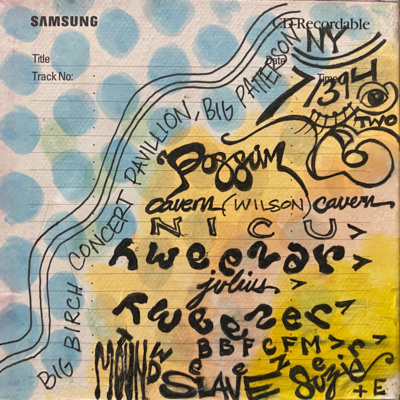 SAMSUNG
CD-Recordable
Title
Date
Track No:
Time
BIG BIRCH CONCERT PAVILLION, BIG PATTERSON NY
7/1394
TWO
Possum
cavern (WILSON) cavern
NICU >
tweezer >
julius >
tweezer >
BBFCFM >
MOUND
SLAVE
+ E